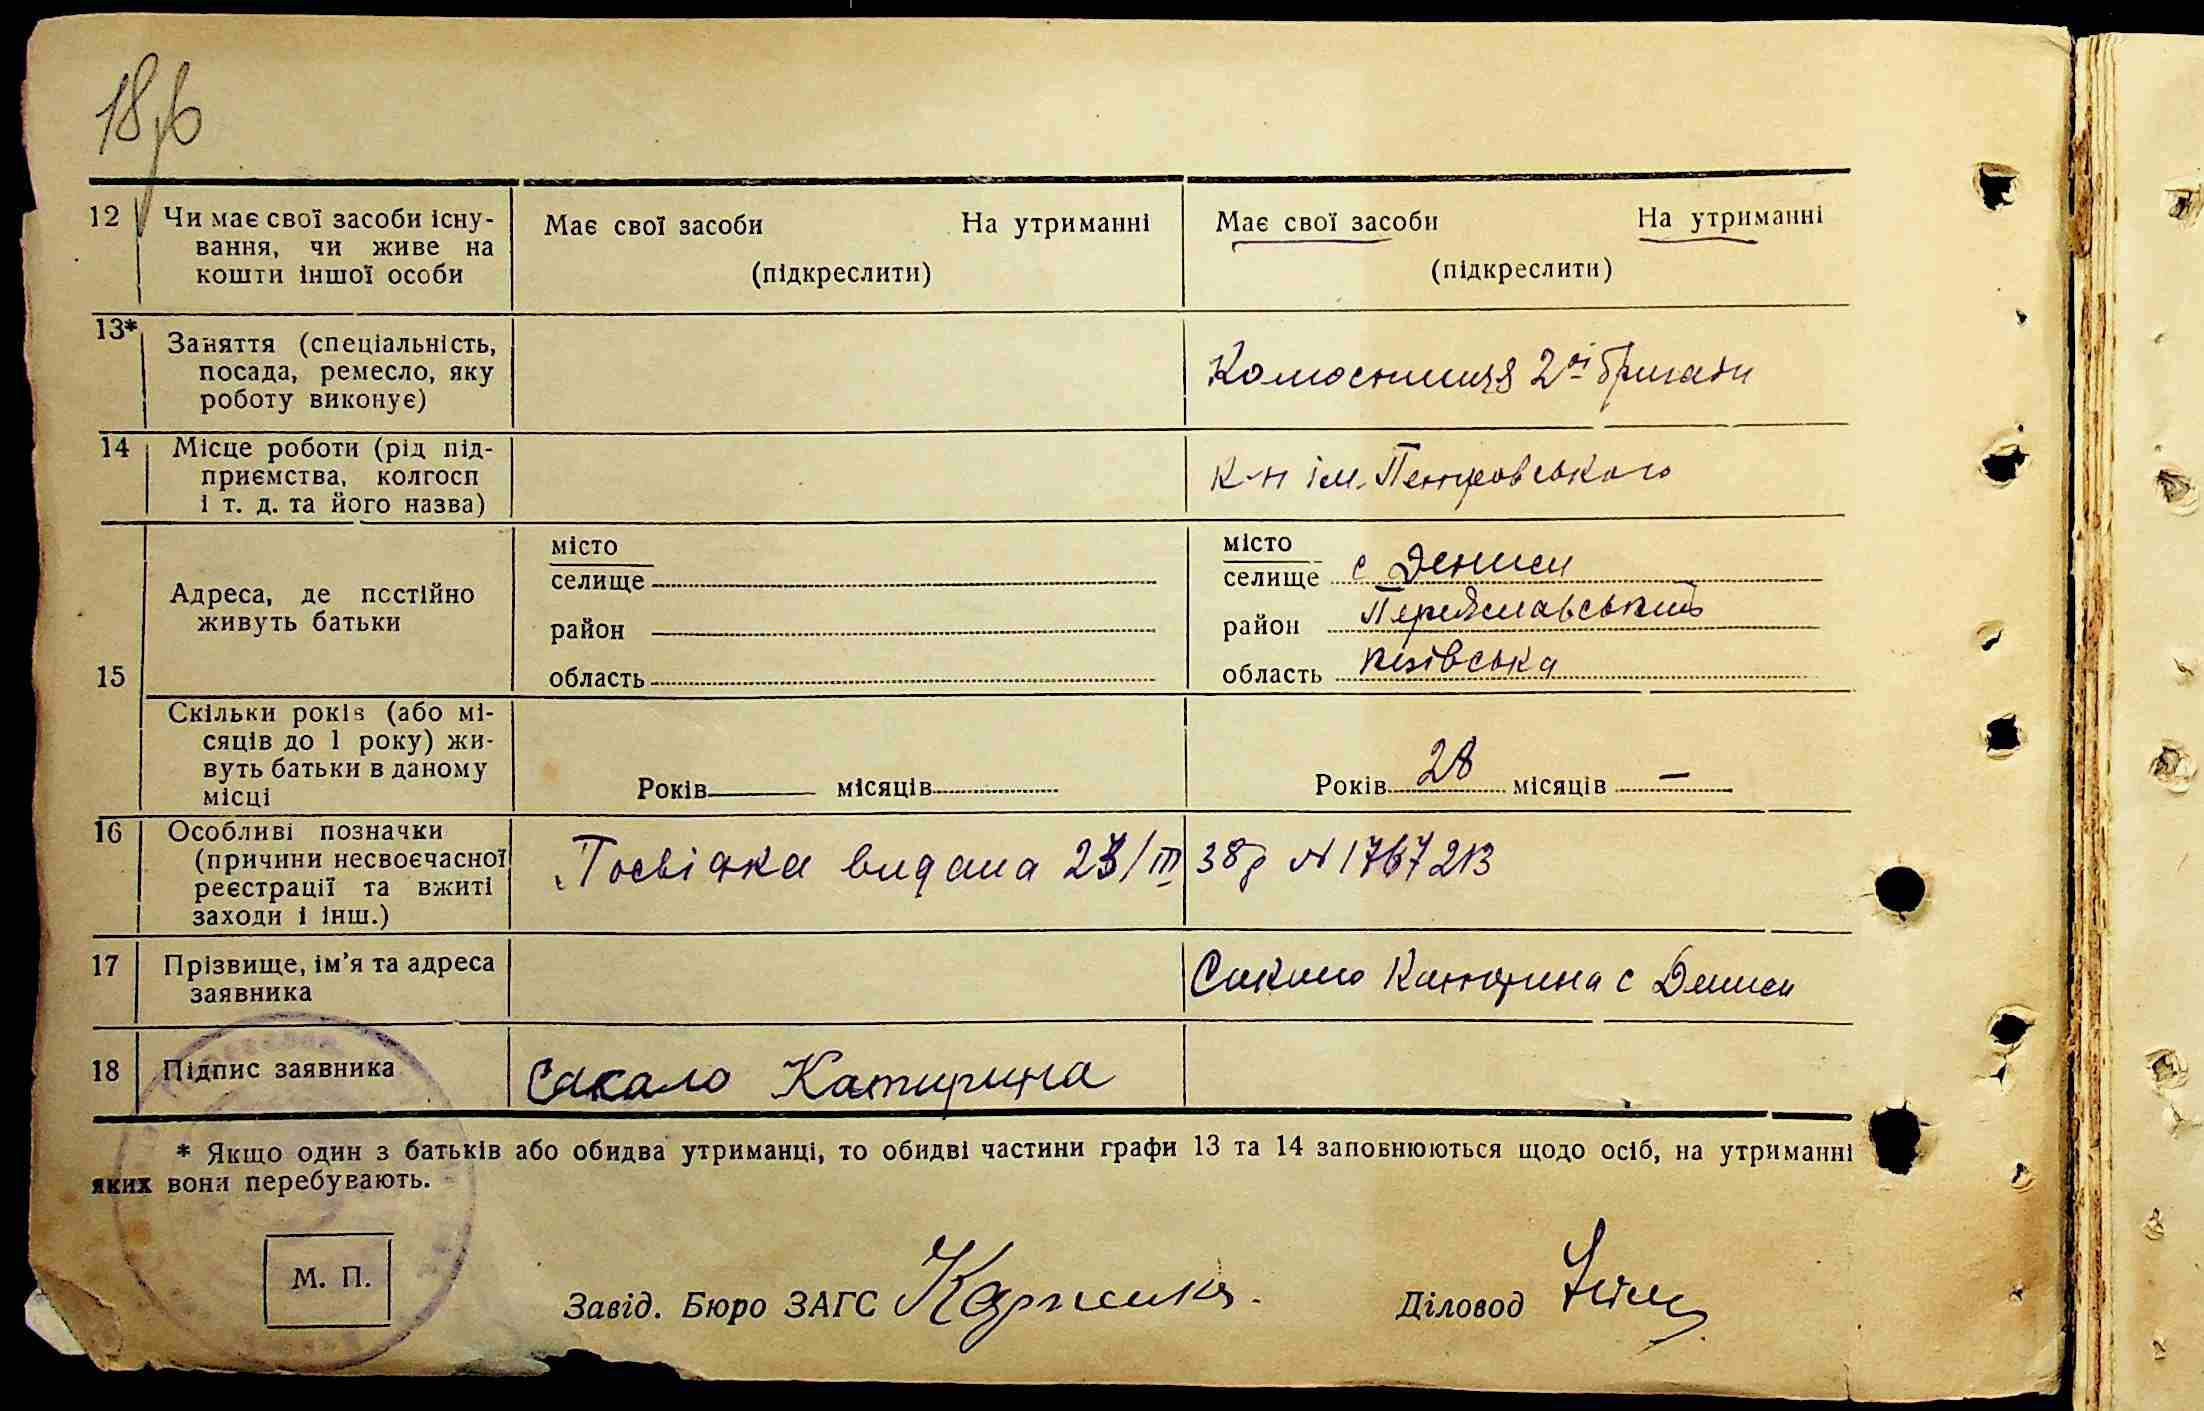 12 Чи має свої засоби існу-
вання, чи живе на
кошти іншої особи
Має свої засоби На утриманні
(підкреслити)
Має свої засоби На утриманні
(підкреслити)
13* Заняття (спеціальність,
посада, ремесло, яку
роботу виконує)
2ої бригади
14 Місце роботи (рід під-
приємства, колгосп
і т. д. та його назва)
к-п ім. Петровського
15
Адреса, де постійно
живуть батьки
місто
селище
район
область
місто
селище с Дениси
район Переяславський
область Київська
Скільки років (або мі-
сяців до 1 року) жи-
вуть батьки в даному
місці
Років місяців
Років 28 місяців —
16 Особливі позначки
(причини несвоєчасної
реєстрації та вжиті
заходи і інш.)
Посвідка видана 23/III 38р N 1767213
17 Прізвище, ім'я та адреса
заявника
Сакало Катерина с Дениси
18 Підпис заявника
Сакало Катирина
* Якщо один з батьків або обидва утриманці, то обидві частини графи 13 та 14 заповнюються щодо осіб, на утриманні
яких вони перебувають.
М. П.
Завід. Бюро ЗАГС
Діловод